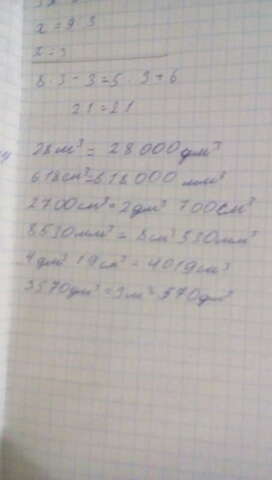 x = 9:3
x = 3
8·3 - 3 = 5·3 + 6
21 = 21
28 м³ = 28 000 дм³
618 см³ = 618 000 мм³
2700 см³ = 2 дм³ 700 см³
8530 мм³ = 8 см³ 530 мм³
4 дм³ 19 см³ = 4019 см³
3570 дм³ = 3 м³ 570 дм³